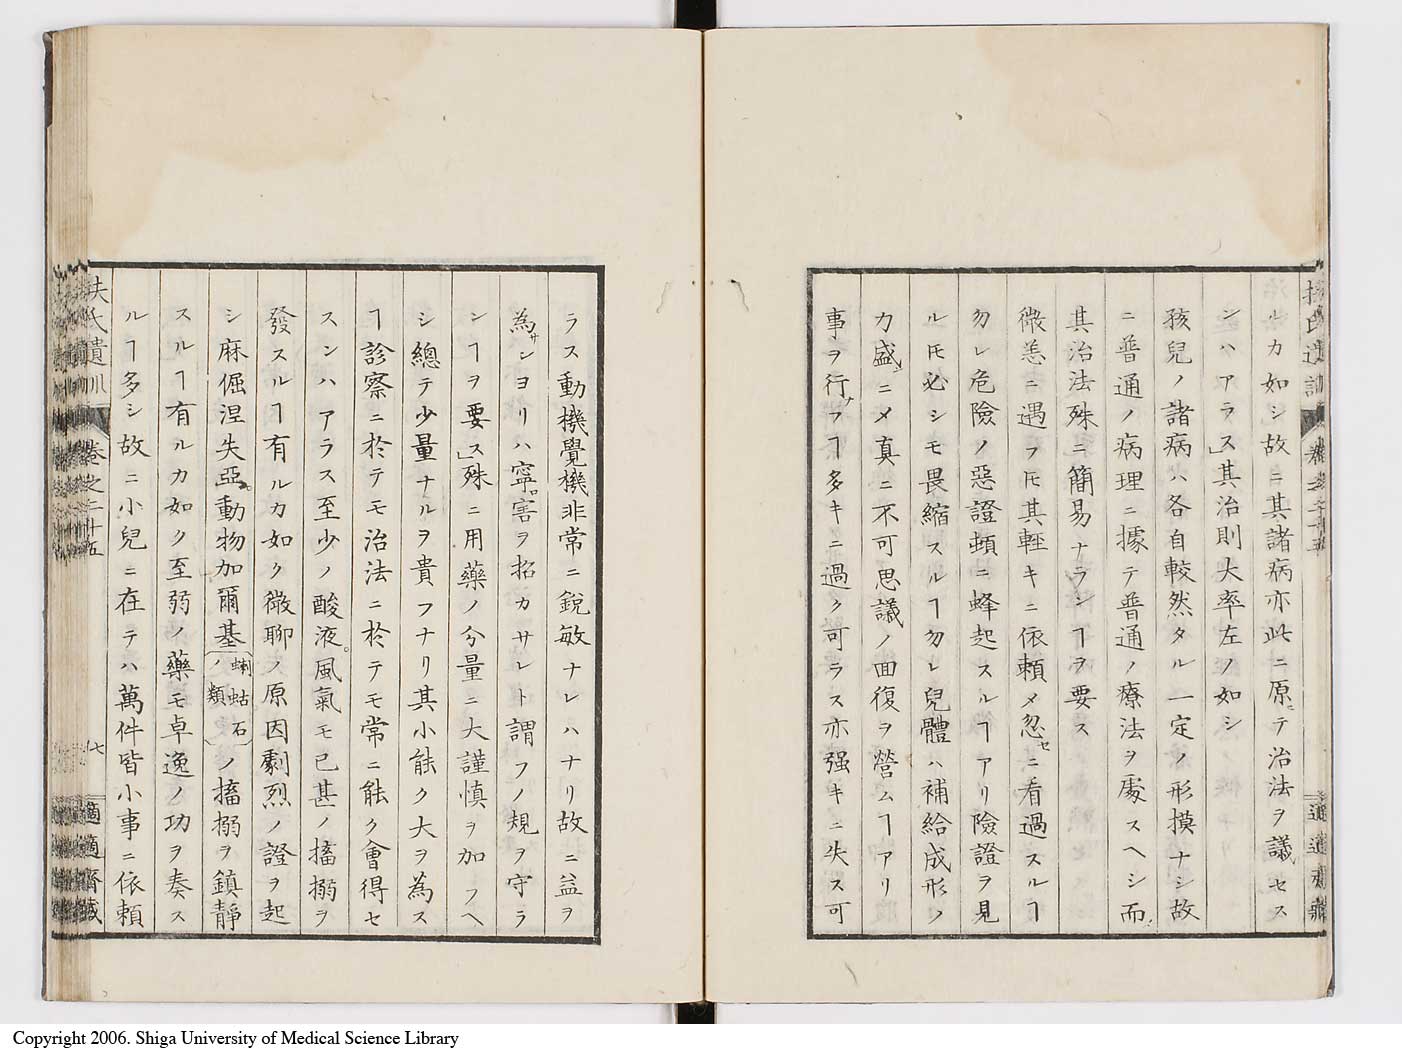 ルカ如シ故ニ其諸病亦此ニ原テ治法ヲ議セス
ンハアラス」其治則大率左ノ如シ
孩兒ノ諸病ハ各自較然タル一定ノ形摸ナシ故
ニ普通ノ病理ニ據テ普通ノ療法ヲ處スヘシ而
其治法殊ニ簡易ナランヿヲ要ス
微恙ニ遇フ𪜈其輕キニ依頼メ忽セニ看過スルヿ
勿レ危險ノ惡證頓ニ蜂起スルヿアリ險證ヲ見
ル𪜈必シモ畏縮スルヿ勿レ兒體ハ補給成形ノ
力盛ニメ真ニ不可思議ノ囬復ヲ營ムヿアリ
事ヲ行フヿ多キニ過ク可ラス亦强キニ失ス可
扶氏遺訓
卷之二十五
七
適適齊藏
ラス動機覺機非常ニ銳敏ナレハナリ故ニ益ヲ
為サンヨリハ寧害ヲ招カサレト謂フノ規ヲ守ラ
ンヿヲ要ス」殊ニ用藥ノ分量ニ大謹慎ヲ加フヘ
シ總テ少量ナルヲ貴フナリ其小能ク大ヲ為ス
ヿ診察ニ於テモ治法ニ於テモ常ニ能ク會得セ
スンハアラス至少ノ酸液。風氣モ已甚ノ搐搦ヲ
發スルヿ有ルカ如ク微聊ノ原因劇烈ノ證ヲ起
シ麻倔涅失亞。動物加爾基〔蝲蛄石ノ類〕ノ搐搦ヲ鎮靜
スルヿ有ルカ如ク至弱ノ藥モ卓逸ノ功ヲ奏ス
ルヿ多シ故ニ小兒ニ在テハ萬件皆小事ニ依頼
Copyright 2006. Shiga University of Medical Science Library